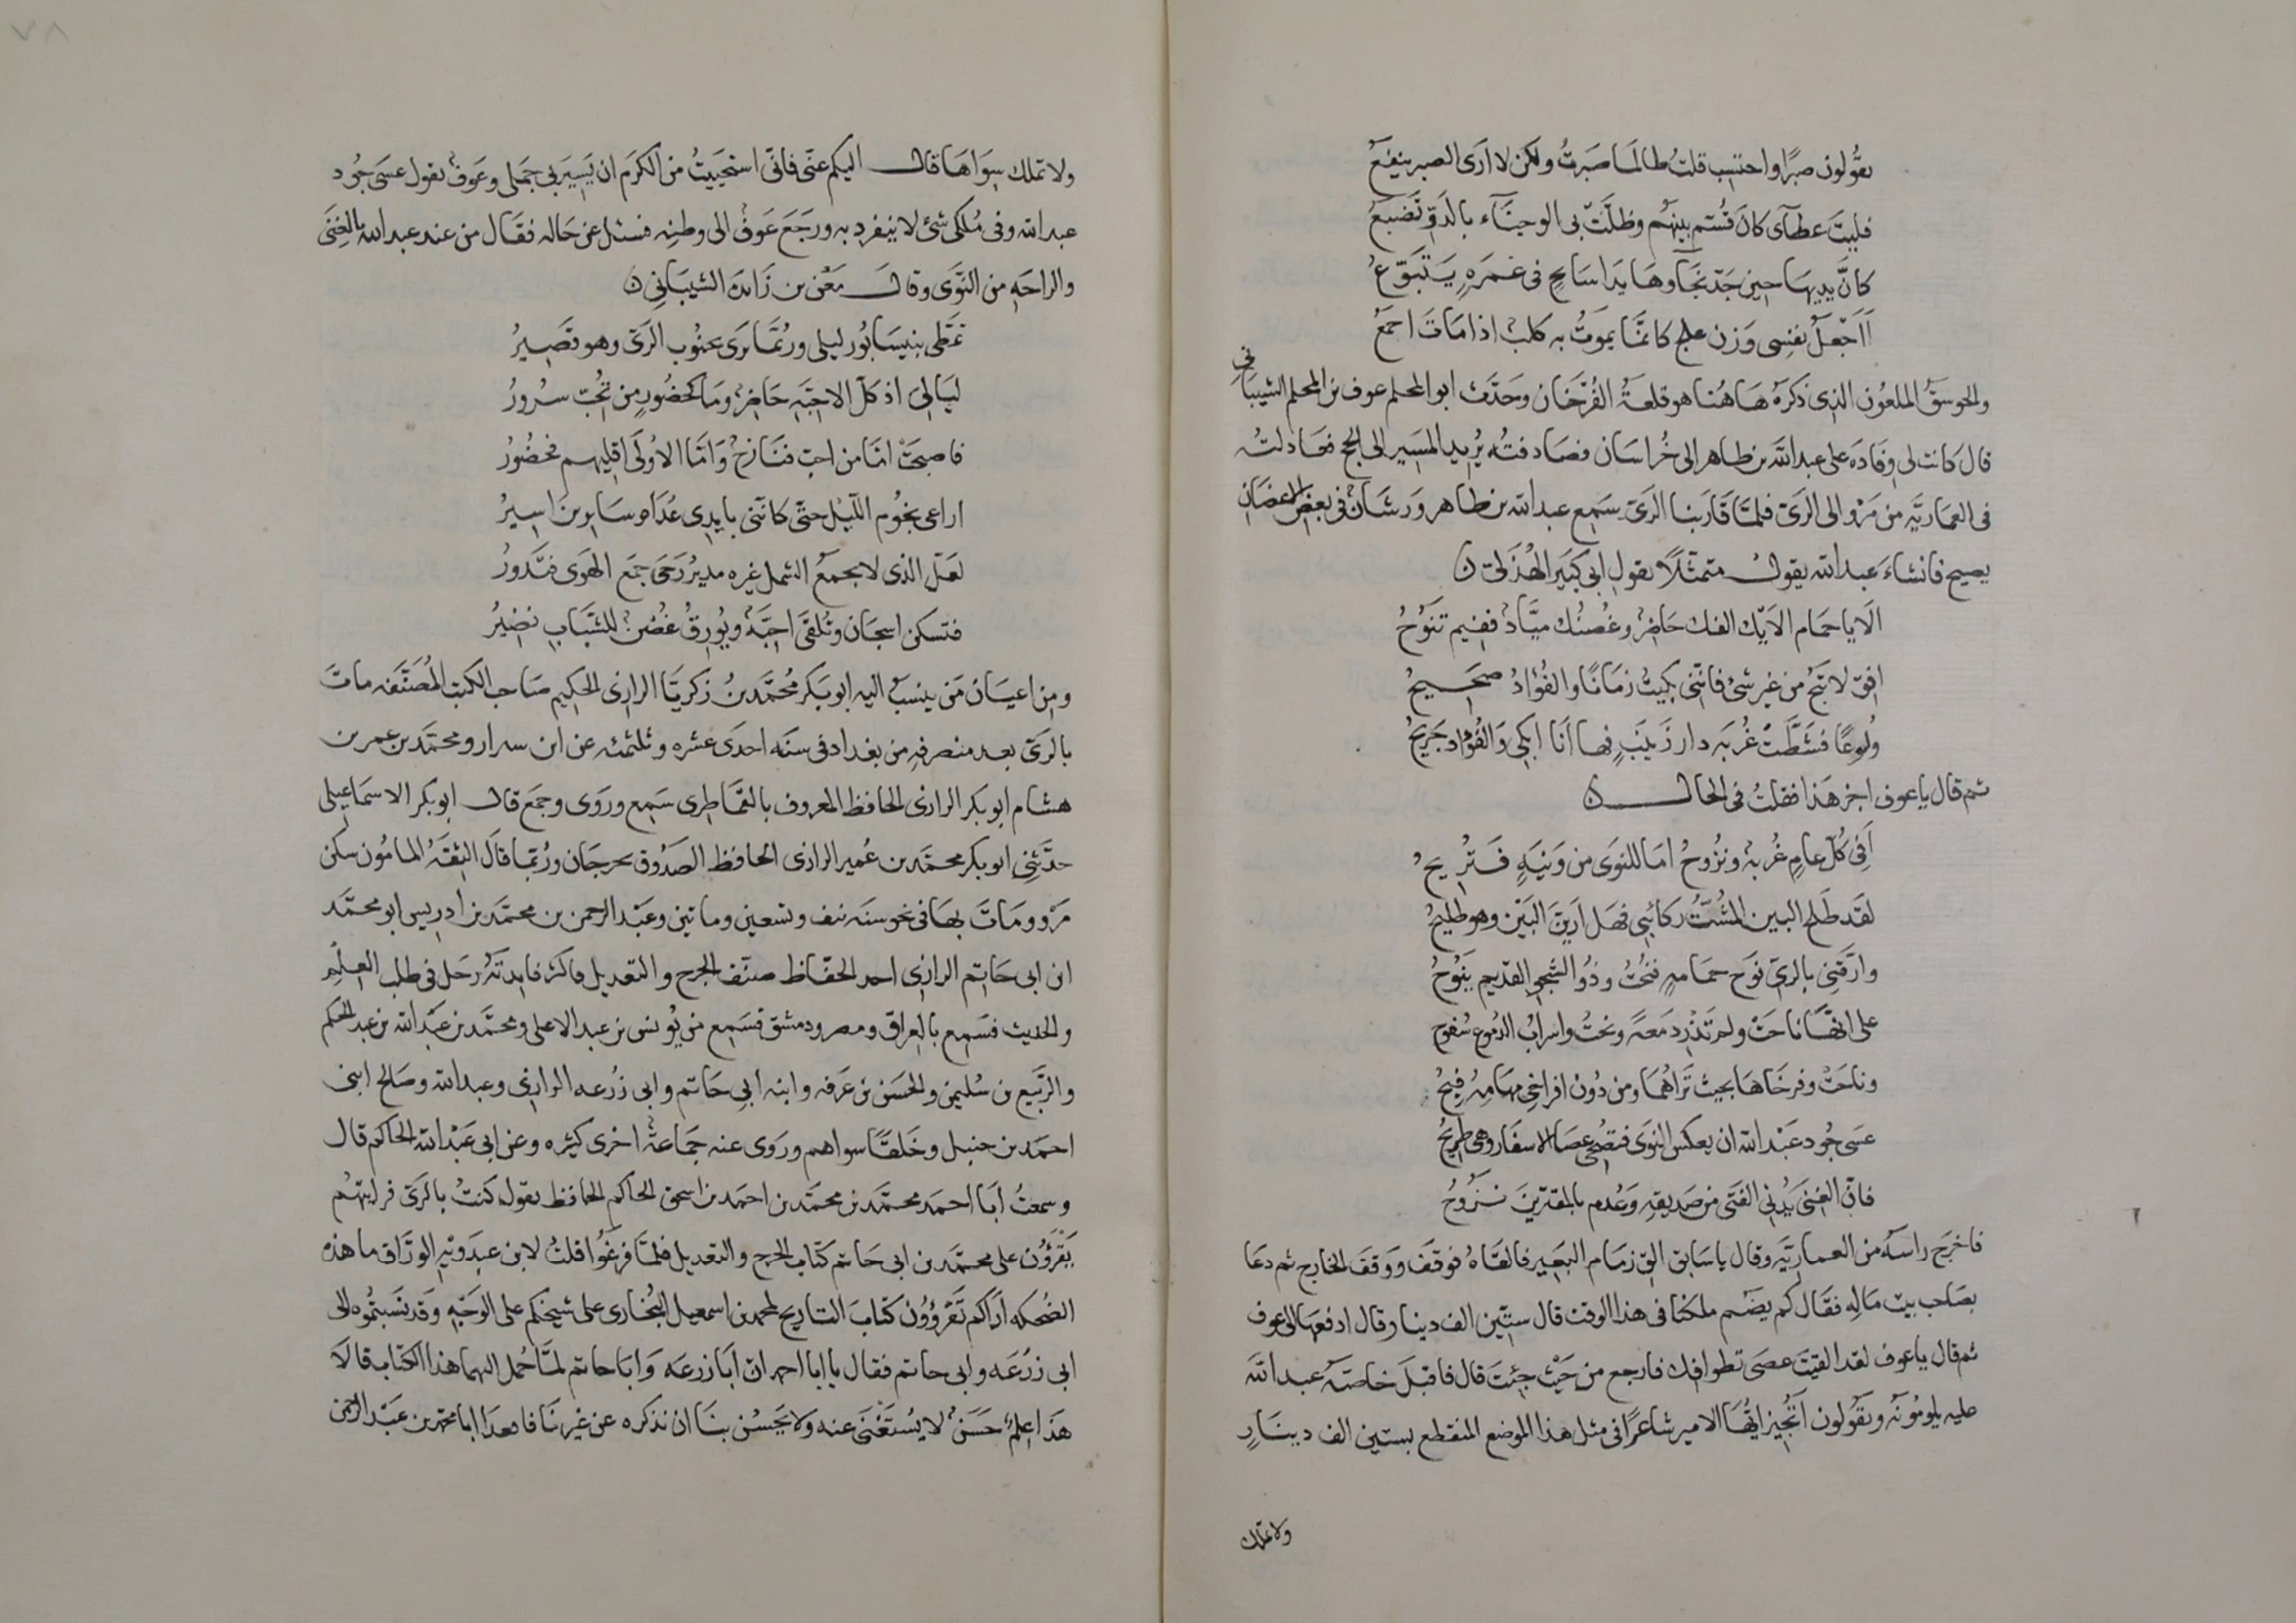 يقولون صبرًا واحتسب قلت طالما صبرتُ ولكن لا ارى الصبر ينفعُ
فليت عطآى كان قُسّم بينهم وظلّت بى الوجنآء بالدوّ تضبعُ
كانّ يديها حين جدّ نجآوها يدا سابح فى غمره يتبوّعُ
أاجعل نفسى وزن علج كانما يموت به كلبٌ اذا مات اجمعُ
والجوسق الملعون الذى ذكره هاهنا هو قلعة الفرّخان وحدّث ابو المحلم عوف بن المحلم الشيبانى
قال كانت لى وفاده على عبد الله بن طاهر الى خُراسان فصادفته يريد المسير الى الحج فعادلته
فى العماريّه من مرو الى الرىّ فلمّا قاربنا الرىّ سمع عبد الله بن طاهر ورشانٌ فى بعض الاغصان
يصيح فانشاء عبد الله يقول متمثّلًا بقول ابى كبير الهُذلىّ
الا يا حمام الايك الفك حاضرٌ وغُصنك ميّادٌ ففيم تنوحُ
افق لا تنح من غير شئ فانّنى بكيتُ زمانًا والفؤادُ صحيحُ
ولُوعًا فشطّت غُربه دار زينب فها انا ابكى والفؤاد جريحُ
ثم قال يا عوف اجز هذا فقلتُ فى الحال
أفى كلّ عام غُربةٌ ونزوحُ اما للنوى من ونية فتريحُ
لقد طلح البين المُشتّ ركائبى فهل ارينّ البين وهو طليحُ
وارّقنى بالرىّ نوح حمامةٍ فنُحتُ وذو الشجو القديم ينوحُ
على انّها ناحت ولم تذر دمعةً ونحتُ واسراب الدموع سُفوح
وناحت وفرخاها بحيث تراهما ومن دون افراخى مهامه فيحُ
عسى جُود عبد الله ان يعكس النوى فتضحى عصا الاسفار وهى طريحُ
فانّ الغنى يُدنى الفتى من صديقه وعُدم بالمقترين نزوحُ
فاخرج راسه من العماريّه وقال يا سابق الق زمام البعير فالقاه فوقف ووقف الخارج ثم دعا
بصاحب بيت ماله فقال كم يضم ملكنا فى هذا الوقت قال ستّين الف دينار قال ادفعها الى عوف
ثم قال يا عوف لقد القيتَ عصى تطوافك فارجع من حيث جئتَ قال فاقبل خاصّة عبد الله
عليه يلومونه ويقولون أتُجيز ايّها الامير شاعرًا فى مثل هذا الموضع المنقطع بستين الف دينارٍ
ولا تملك
ولا تملك سواها قال اليكم عنّى فانّى استحييتُ من الكرم ان يسير بى جملى وعوفٌ يقول عسى جُود
عبد الله وفى مُلكى شئ لا ينفرد به ورجع عوفٌ الى وطنه فسئل عن حاله فقال من عند عبد الله بالغنى
والراحه من النّوى وقال معن بن زائده الشيبانى
تمطّى بنيسابور ليلى وربّما يرى بجنوب الرىّ وهو قصيرُ
ليالى اذ كلّ الاحبّه حاضرٌ وما كحضور من تُحبّ سرورُ
فاصبحتُ امّا من احبّ فنازحٌ وامّا الاُولى اقليهم فحضُورُ
اراعى نجوم الليل حتّى كانّنى بايدى عُداه سايرين اسيرُ
لعلّ الذى لا يجمع الشمل غيره مدير رحى جمع الهوى فتدورُ
فتسكن اشجان وتلقى احبّةٌ ويُورق غُصنٌ للشباب نضيرُ
ومن اعيان من ينسب اليه ابو بكر محمّد بن زكريّا الرازى الحكيم صاحب الكتب المُصنّفه مات
بالرىّ بعد منصرفه من بغداد فى سنه احدى عشره وثلثمئه عن ابن سرار ومحمّد بن عمر بن
هشام ابو بكر الرازى الحافظ المعروف بالقماطرى سمع وروى وجمع قال ابو بكر الاسماعيلى
حدّثنى ابو بكر محمّد بن عُمير الرازى الحافظ الصدوق بجرجان وربّما قال الثقة المامون سكن
مرو ومات بها فى نحو سنه نيف وتسعين وماتين وعبد الرحمن بن محمّد بن ادريس ابو محمّد
ابن ابى حاتم الرازى احد الحفّاظ صنّف الجرح والتعديل فاكثر فايدته رحل فى طلب العلم
والحديث فسمع بالعراق ومصر ودمشق فسمع من يونس بن عبد الاعلى ومحمّد بن عبد الله بن عبد الحكم
والرّبيع بن سُليمن والحسن بن عرفه وابنه ابى حاتم وابى زُرعه الرازى وعبد الله وصالح ابنى
احمد بن حنبل وخلقًا سواهم وروى عنه جماعةٌ اخرى كثيره وعن ابى عبد الله الحاكم قال
وسمعتُ أبا احمد محمّد بن محمّد بن احمد بن اسحق الحاكم الحافظ يقول كنتُ بالرىّ فرايتهُم
يقرؤن على محمّد بن ابى حاتم كتاب الجرح والتعديل فلمّا فرغُوا قلتُ لابن عبدويه الورّاق ما هذه
الضُحكه أراكم تقرؤون كتاب التاريخ لمحمد بن اسمعيل البُخارى على شيخكم على الوجه وقد نسبتُموه الى
ابى زرعه وابى حاتم فقال يا ابا احمد ان ابا زرعه وابا حاتم لمّا حُمل اليهما هذا الكتاب قالا
هذا علمٌ حسنٌ لا يُستغنى عنه ولا يحسُن بنا ان نذكره عن غيرنا فاقعدا ابا محمّد بن عبد الرحمن
٧٨